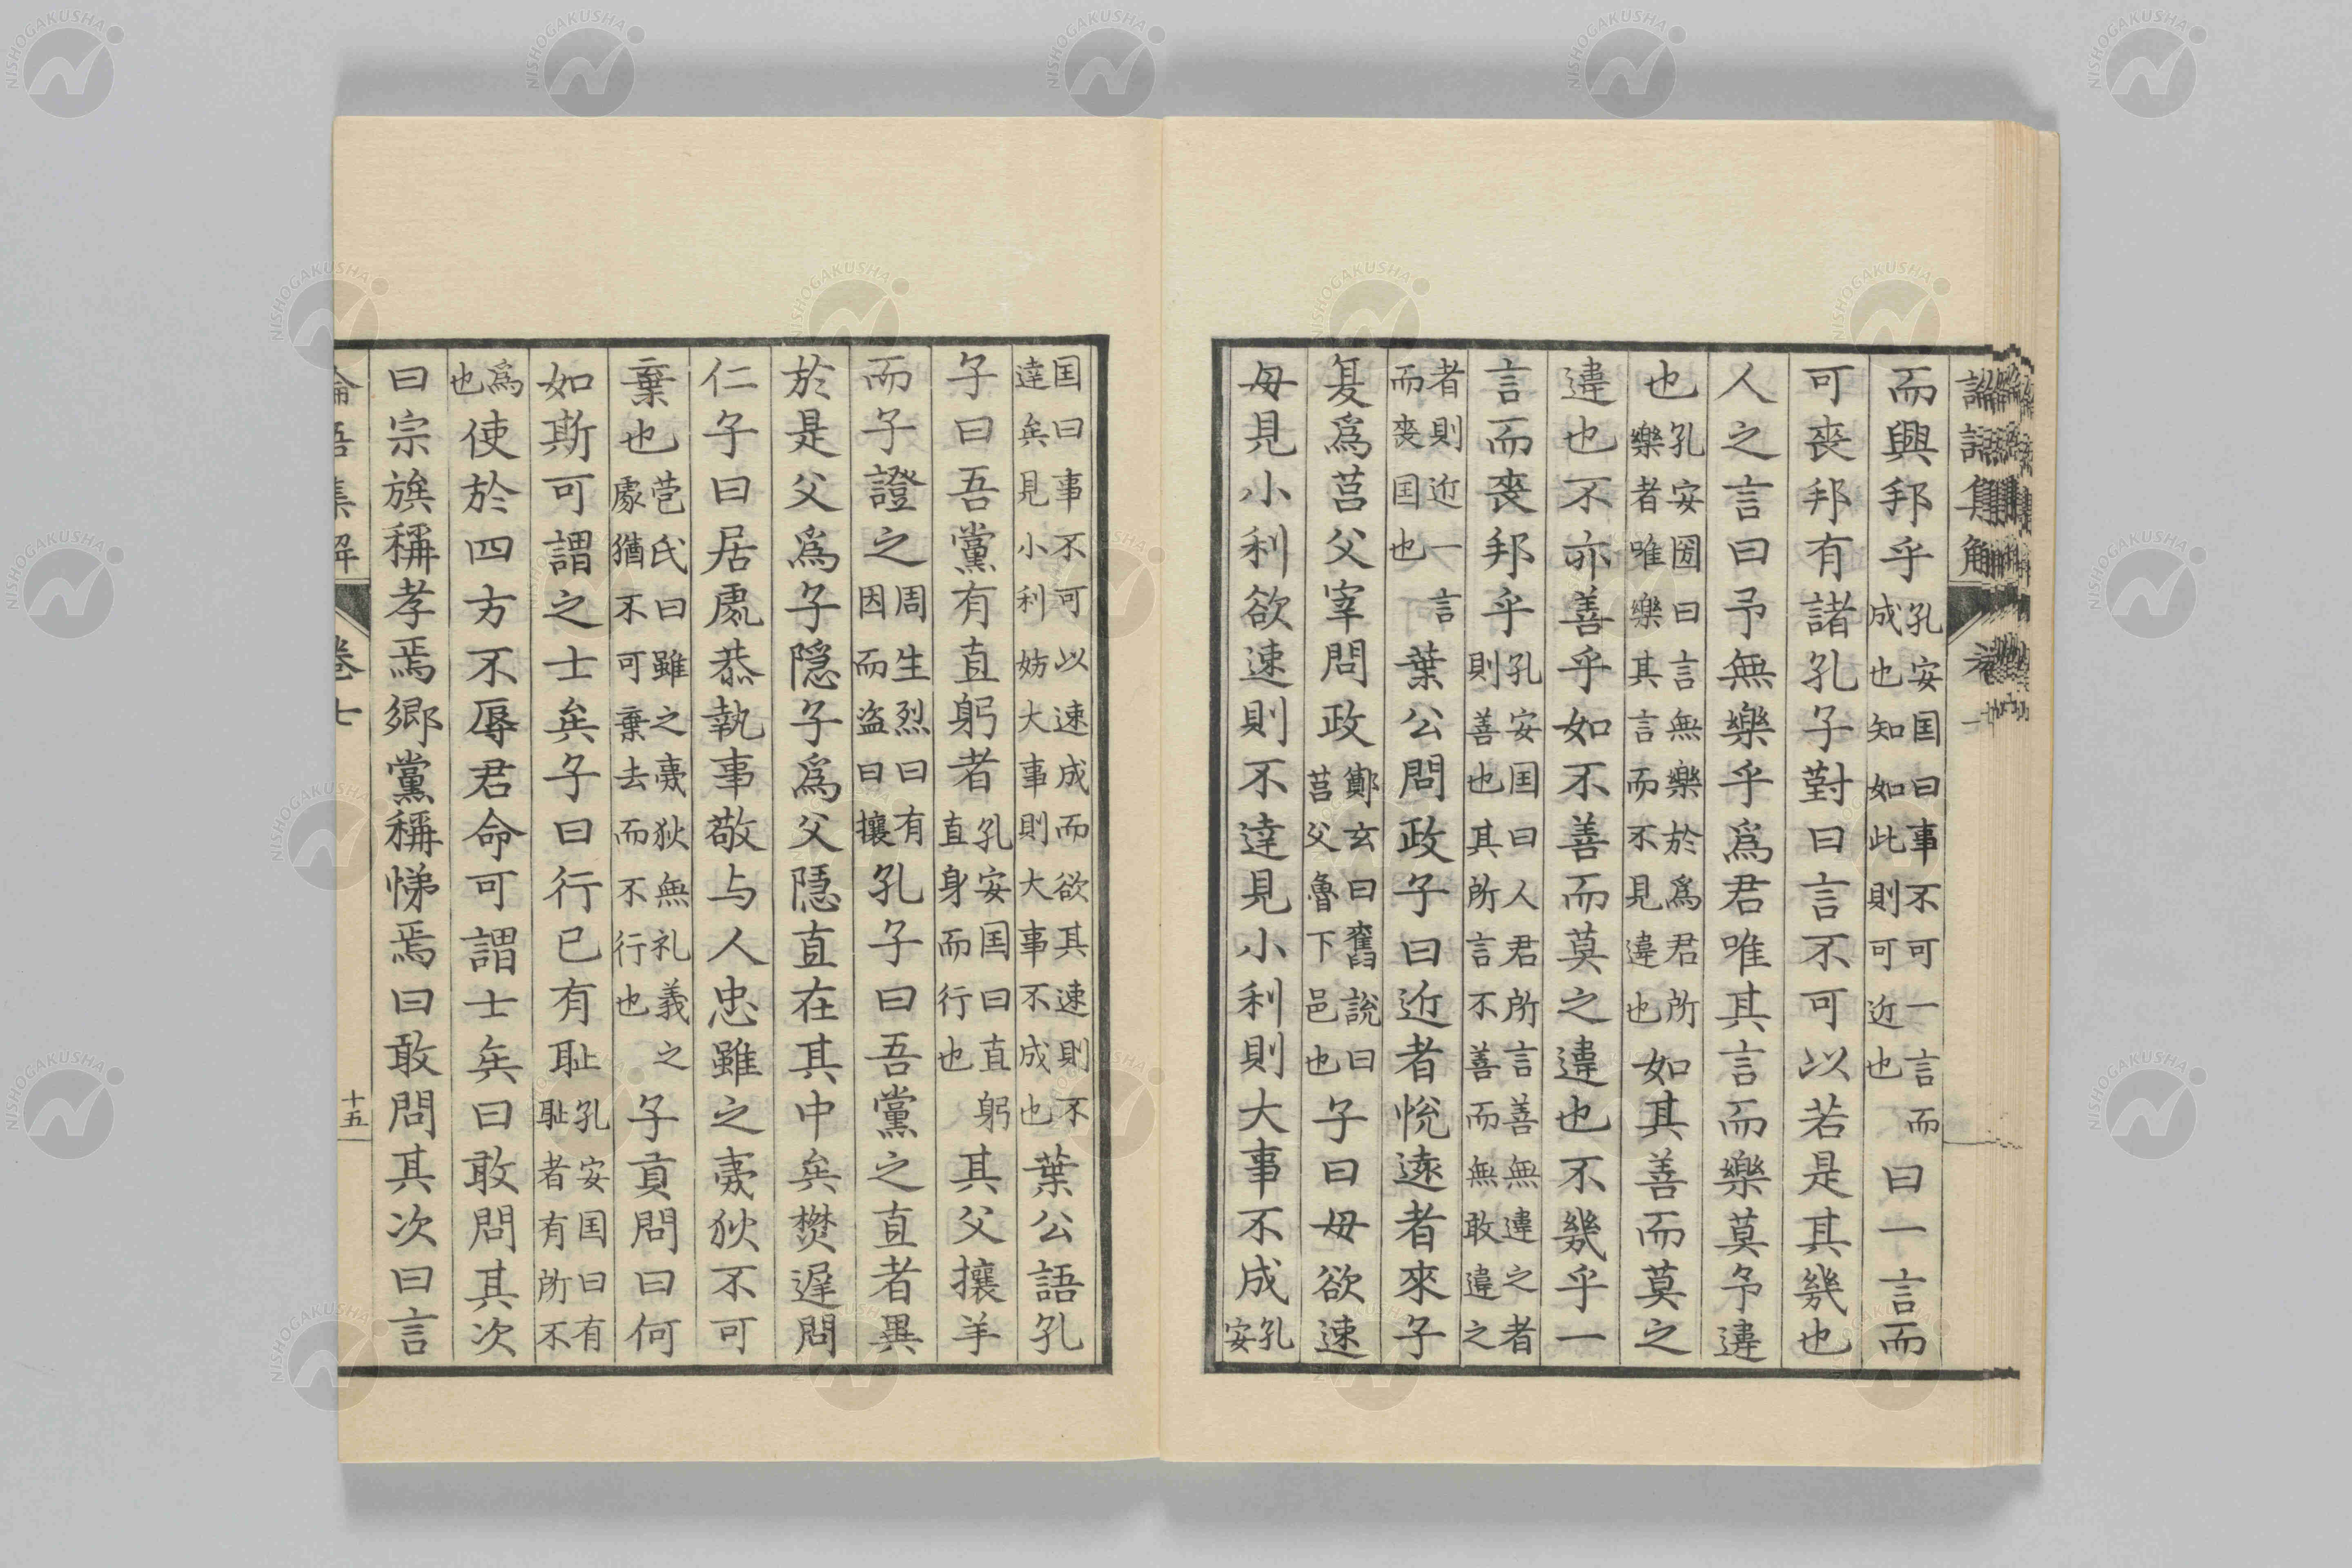 而興邦乎孔安囯曰事不可一言而成也知如此則可近也曰一言而
可喪邦有諸孔子對曰言不可以若是其幾也
人之言曰予無樂乎爲君唯其言而樂莫予違
也孔安囶曰言無樂於爲君所樂者唯樂其言而不見違也如其善而莫之
違也不亦善乎如不善而莫之違也不幾乎一
言而喪邦乎孔安囯曰人君所言善無違之者則善也其所言不善而無敢違之
者則近一言而喪囯也葉公問政子曰近者悅遠者來子
夏爲莒父宰問政鄭玄曰舊說曰莒父魯下邑也子曰毋欲速
毋見小利欲速則不達見小利則大事不成孔安
囯曰事不可以速成而欲其速則不達矣見小利妨大事則大事不成也葉公語孔
子曰吾黨有直躬者孔安囯曰直躬直身而行也其父攘羊
而子證之周生烈曰有因而盗曰攘孔子曰吾黨之直者異
於是父爲子隱子爲父隱直在其中矣樊遲問
仁子曰居處恭執事敬与人忠雖之夷狄不可
棄也苞氏曰雖之夷狄無礼義之處猶不可棄去而不行也子貢問曰何
如斯可謂之士矣子曰行己有耻孔安囯曰有耻者有所不
爲也使於四方不辱君命可謂士矣曰敢問其次
曰宗族稱孝焉郷黨稱悌焉曰敢問其次曰言
論語集解 卷七 十五
NISHOGAKUSHA